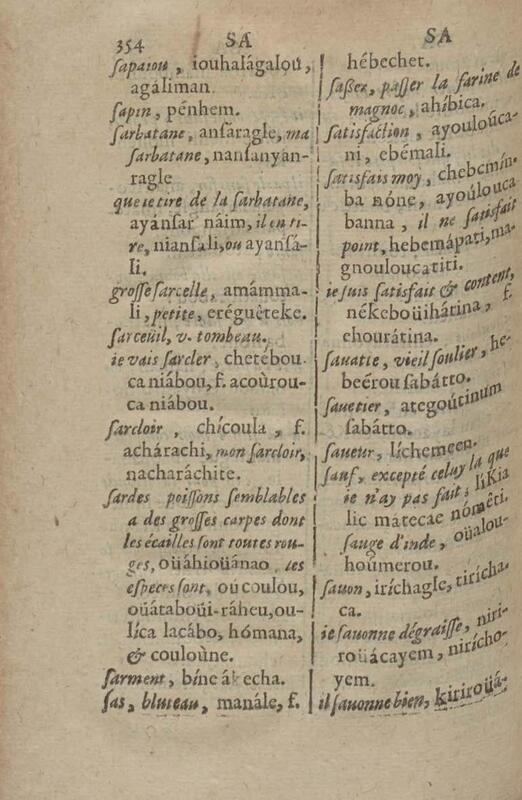 354 SA
SA
sapaiou, iouhalágaloü,
agáliman.
sapin, pénhem.
sarbatane, ansáragle, ma
sarbatane, nansanyan-
ragle
que ie tire de la sarbatane,
ayánsar náim, il en ti-
re, niansali, ou ayansá-
li.
grosse sarcelle, amámma-
li, petite, eréguêteke.
sarceüil, v. tombeau.
ie vais sarcler, chetébou
ca niábou, f. acoùrou-
ca niábou.
sarcloir, chícoula, f.
achárachi, mon sarcloir,
nacharáchite.
sardes poissons semblables
a des grosses carpes dont
les écailles sont toutes rou-
ges, oüáhioüánao les
especes sont, oucoulou,
oüátaboüi-ráheu, ou-
líca lacábo, hómana,
& couloùne.
sarment, bíne ákecha.
sas, bluteau, manále, f.
hébechet.
saßer, paßer la farine de
magnoc, ahíbica.
satisfaction, ayouloúca-
ni, ebémali.
satisfais moy, chebemín-
ba nóne, ayoúlouca
banna, il ne satisfait
point, hebemápati, ma-
gnouloucatiti.
ie suis satisfait & content,
nékeboüihátina, f.
chourátina.
sauatte, vieil soulier, he-
beérou sabátto.
sauetier, ategoútinum
sabátto.
saueur, líchemeen.
sauf, excepté celuy la que
ie n'ay pas fait, líkia
lic mátecae nómêti.
sauge d'inde, oüalou-
hoúmerou.
sauon, iríchagle, tiricha-
ca.
ie sauonne dégraisse, niri-
roüácayem, nirícho-
yem.
il sauonne bien, kiriroüá-